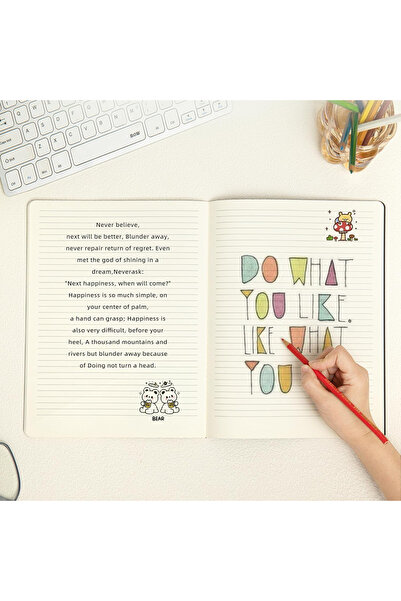 Never believe,
next will be better, Blunder away,
never repair return of regret. Even
met the god of shining in a
dream,Neverask:
"Next happiness, when will come?"
Happiness is so much simple, on
your center of palm,
a hand can grasp; Happiness is
also very difficult, before your
heel, A thousand mountains and
rivers but blunder away because
of Doing not turn a head.
BEAR
DO WHAT
YOU LIKE.
LIKE WHAT
YOU
BOW